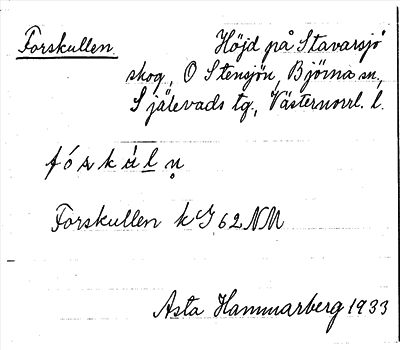 Forskullen. Höjd på Stavarsjö
skog, O Stensjön, Björna sn,
Själevads tg., Västernorrl. l.
Forskullen k G 62 NM
Asta Hammarberg 1933